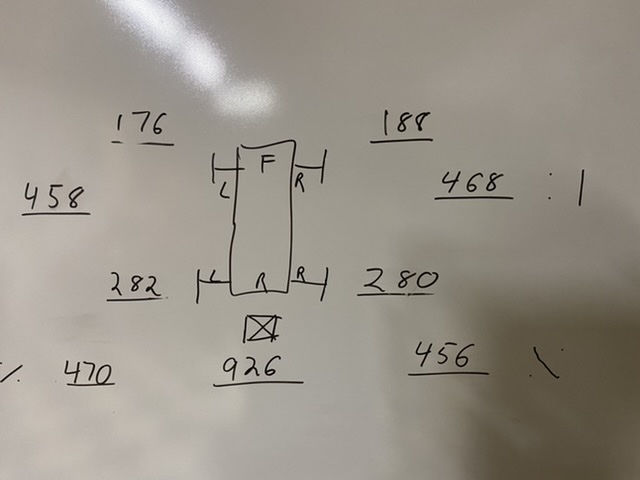 176 188
F
L R
458 468 : |
282 L R R 280
470 926 456